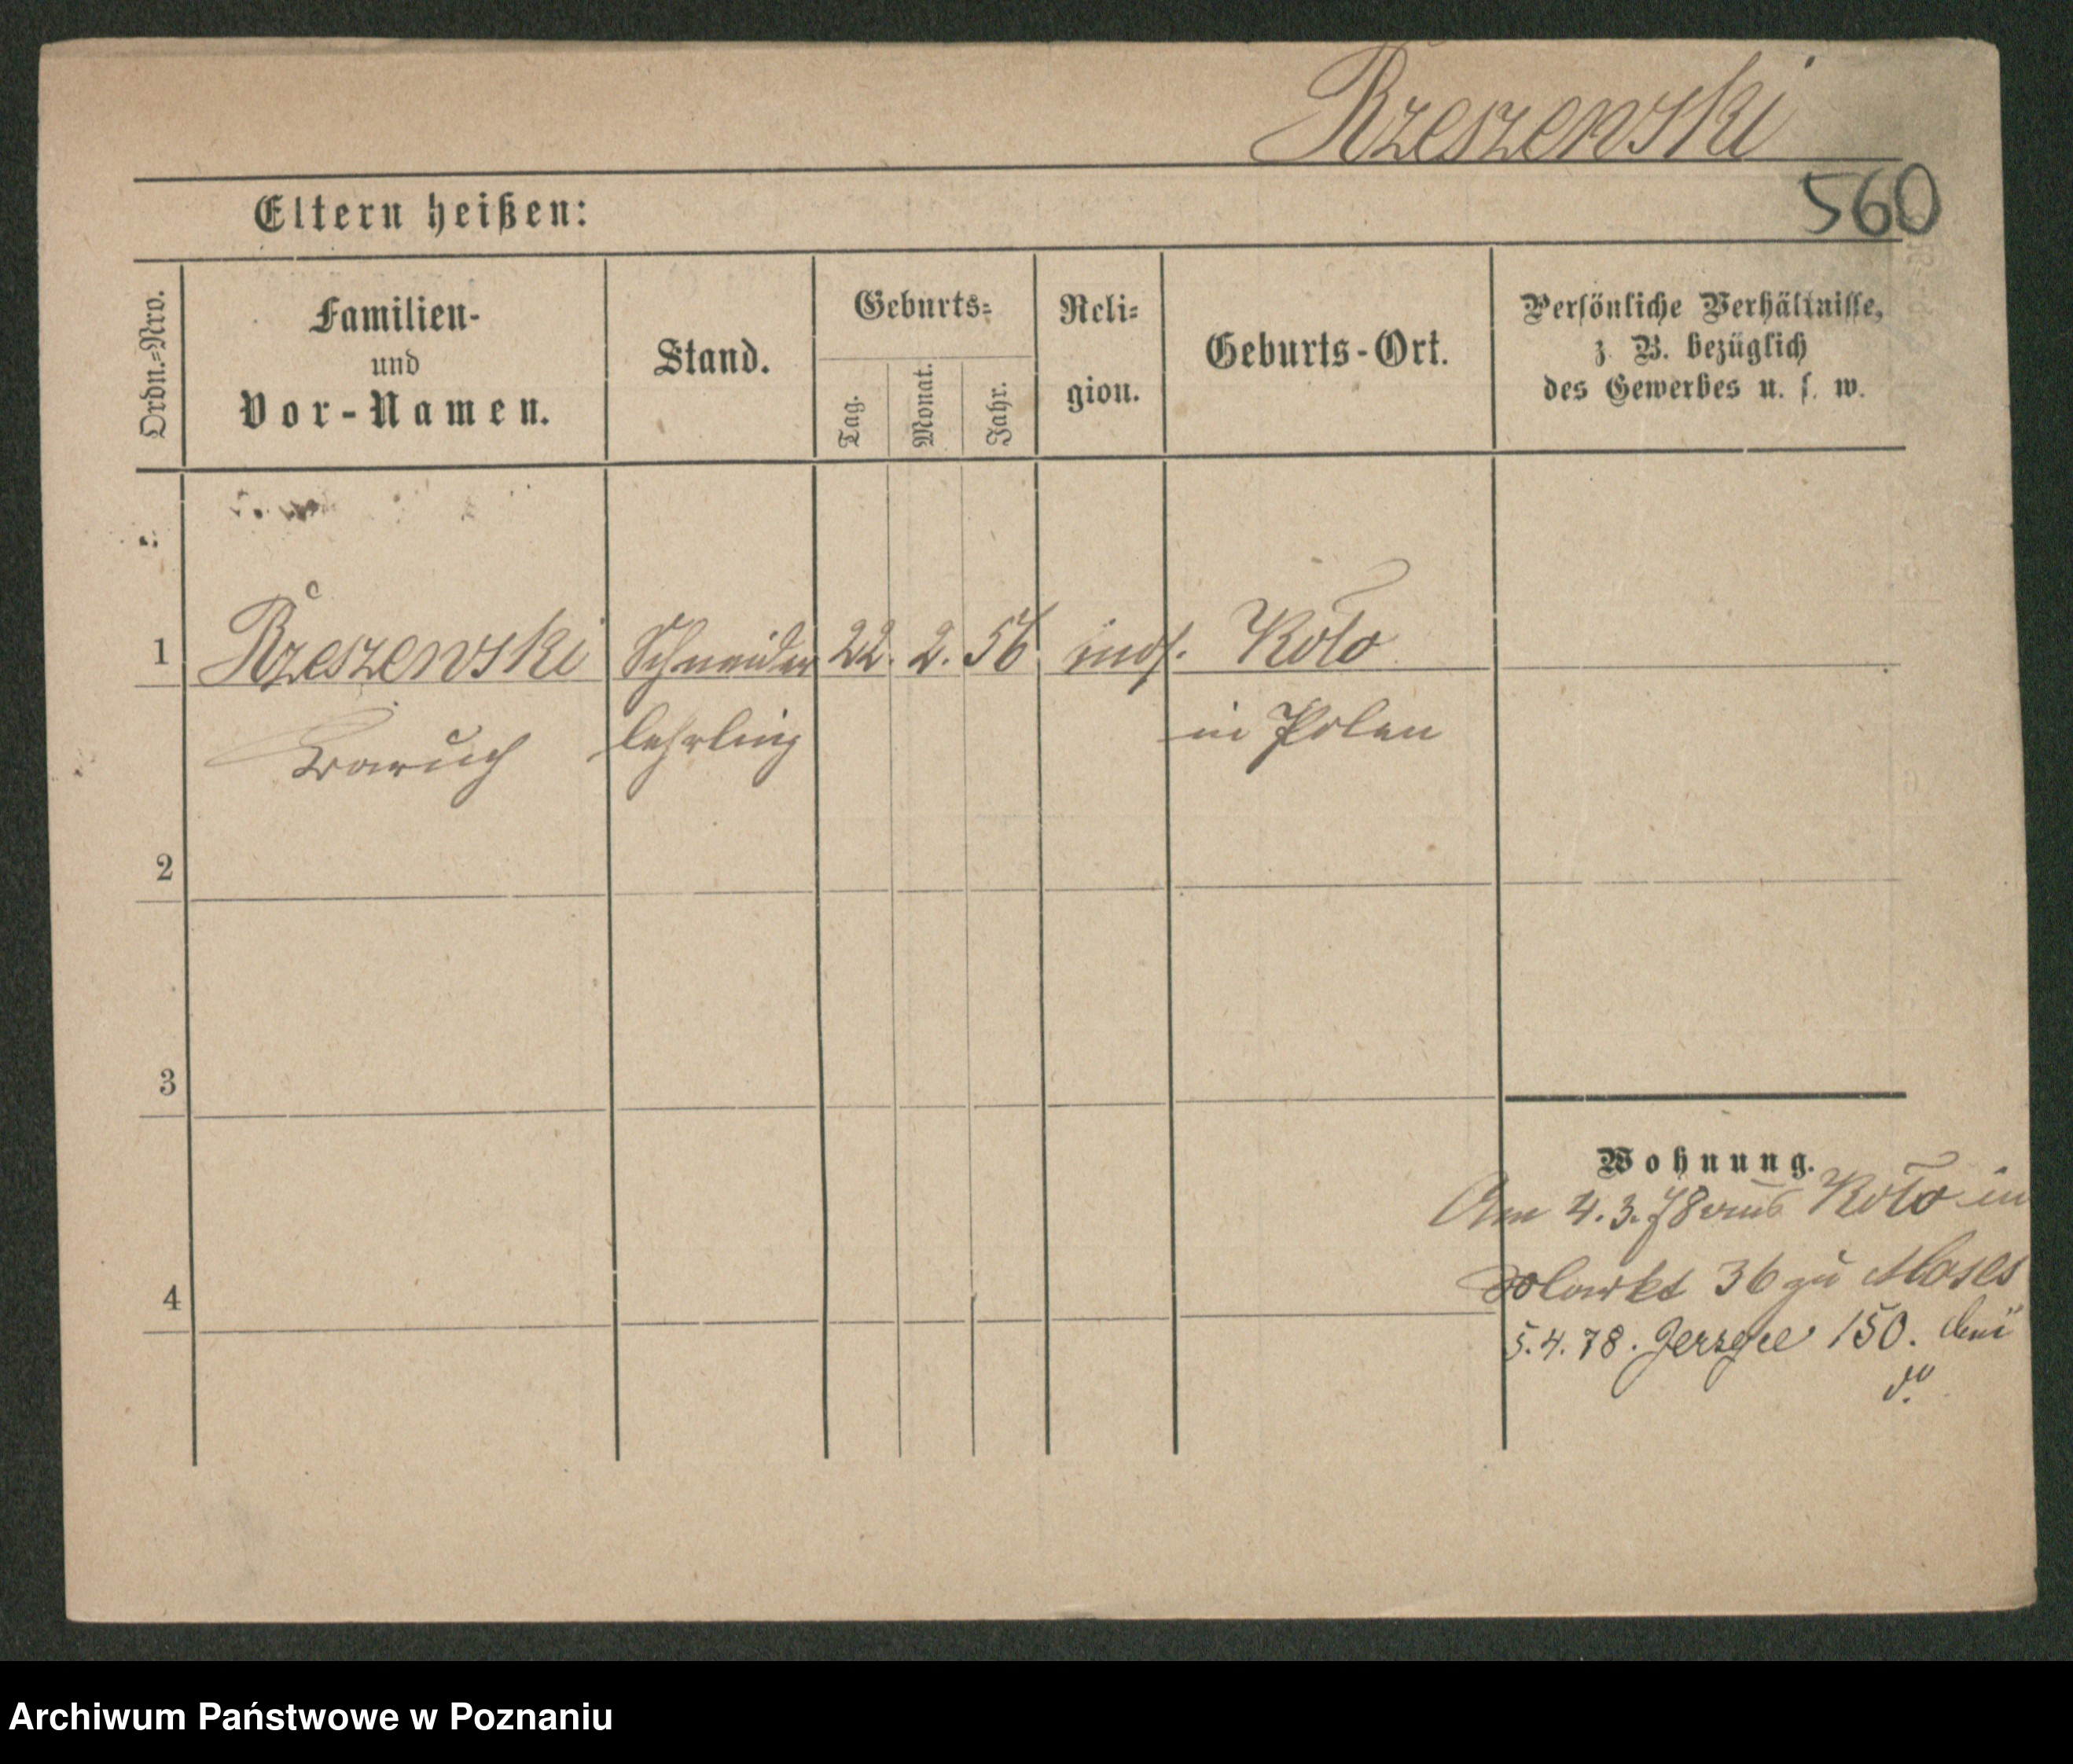 Rzeszewski
560
Eltern heißen:
Ordn.=Nro.
Familien-
und
Vor-Namen.
Stand.
Geburts=
Tag.
Monat.
Jahr.
Reli=
gion.
Geburts-Ort.
Persönliche Verhältnisse,
z. B. bezüglich
des Gewerbes u. s. w.
1 Rzeszewski Schneider 22. 2. 56 Koło
Baruch lehrling in Polen
2
3
4
Wohnung.
Am 4.3.78 aus Koło in
36 zu Moses
5.4.78. 150. bei
do.
Archiwum Państwowe w Poznaniu